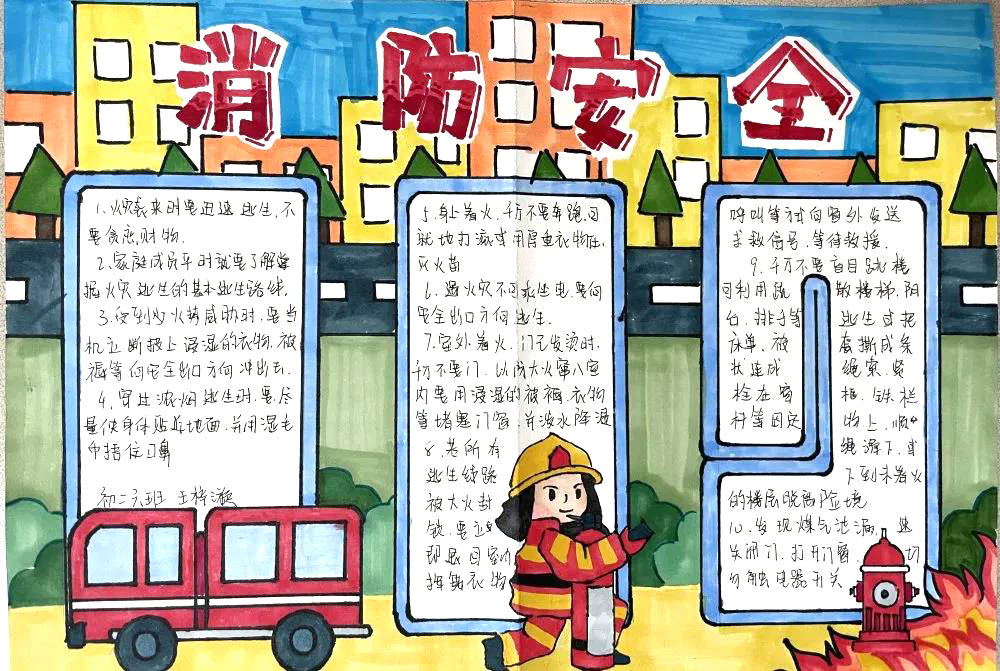 消防安全
1.火灾袭来时要迅速逃生,不
要贪恋财物.
2.家庭成员平时就要了解掌
握火灾逃生的基本逃生路线.
3.受到火势威胁时.要当
机立断披上浸湿的衣物.被
褥等向安全出口方向冲出去.
4.穿过浓烟逃生时.要尽
量使身体贴近地面.并用湿毛
巾捂住口鼻
初二六班 王梓漩
5.身上着火.千万不要奔跑.可
就地打滚或用厚重衣物压
灭火苗
6.遇火灾不可乘坐电.要向
安全出口方向逃生.
7.室外着火.门已发烫时.
千万不要门.以防大火窜入室
内要用浸湿的被褥.衣物
等堵塞门窗.并泼水降温
8.若所有
逃生线路
被大火封
锁.要立
即退回室内
挥舞衣物
呼叫等方式向窗外发送
求救信号.等待救援.
9.千万不要盲目跳楼
可利用疏散楼梯.阳
台.排子等逃生或把
床单.被套撕成条
状连成绳索.紧
栓在窗框.铁栏
杆等固定物上.顺
绳滑下.或
下到未着火
的楼层脱离险境
10.发现煤气泄漏.迅
关阀门.打开门窗.切
勿触电器开关